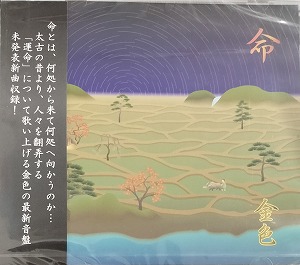 命とは、何処から来て何処へ向かうのか…
太古の昔より、人々を翻弄する
「運命」について歌い上げる金色の最新音盤
未発表新曲収録!
命
金色